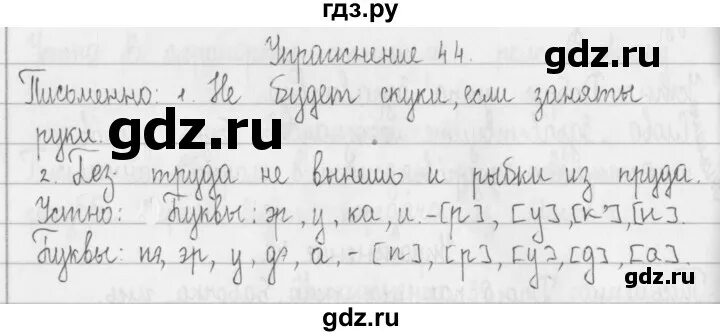 гдз.ру
Упражнение 44.
Письменно: 1. Не будет скуки, если заняты
руки.
2. Без труда не вынешь и рыбки из пруда.
Устно: Буквы: эр, у, ка, и - [р], [у], [к'], [и].
Буквы: пэ, эр, у, дэ, а, - [п], [р], [у], [д], [а].
gdz.ru
gdz.ru
gdz.ru
gdz.ru
gdz.ru